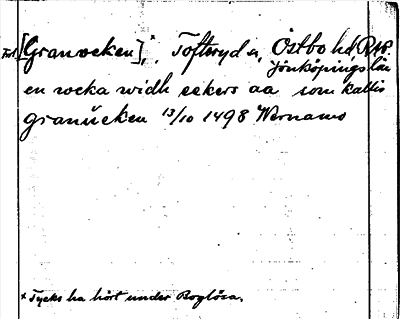 [Granveken],ˣ. Tofteryd sn, Östbo hd
Jönköpings län
en weka widh eekers aa som kallis
granűeken 13/10 1498 Wernamo
x Tycks ha hört under Boglösa.